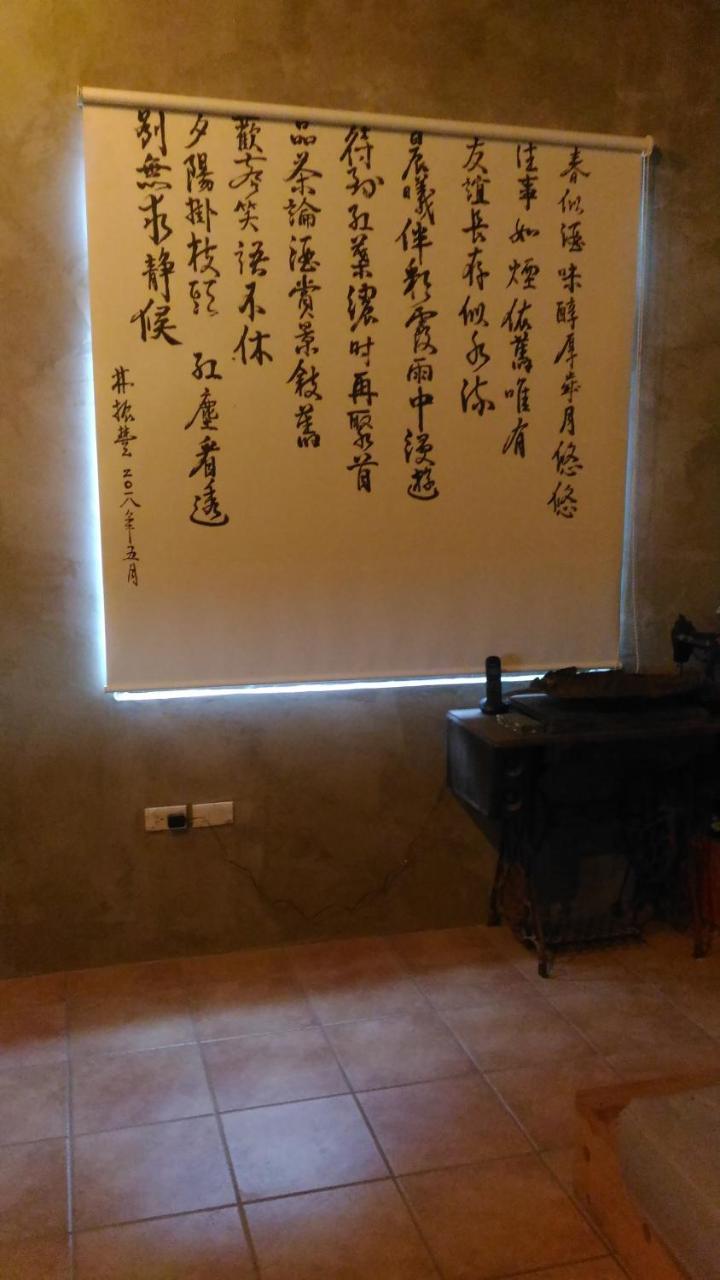 春似酒味醇厚歲月悠悠
往事如煙依舊唯有
友誼長存似水流
晨曦伴彩霞雨中漫遊
待到紅葉濃時再聚首
品茶論酒賞景敍舊
歡聲笑語不休
夕陽掛枝頭 紅塵看透
別無求靜候
林振豊二〇一八年五月